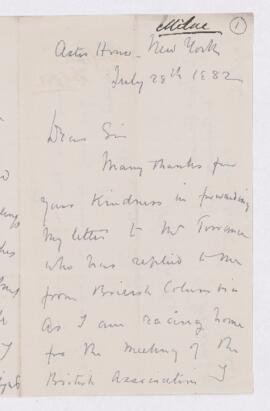 Milne
1
Astor House - New York
July 28th 1882
Dear Sir
Many thanks for
your kindness in forwarding
my letter to Mr Torrance
who has replied to me
from British Columbia
As I am racing home
for the meeting of the
British Association I